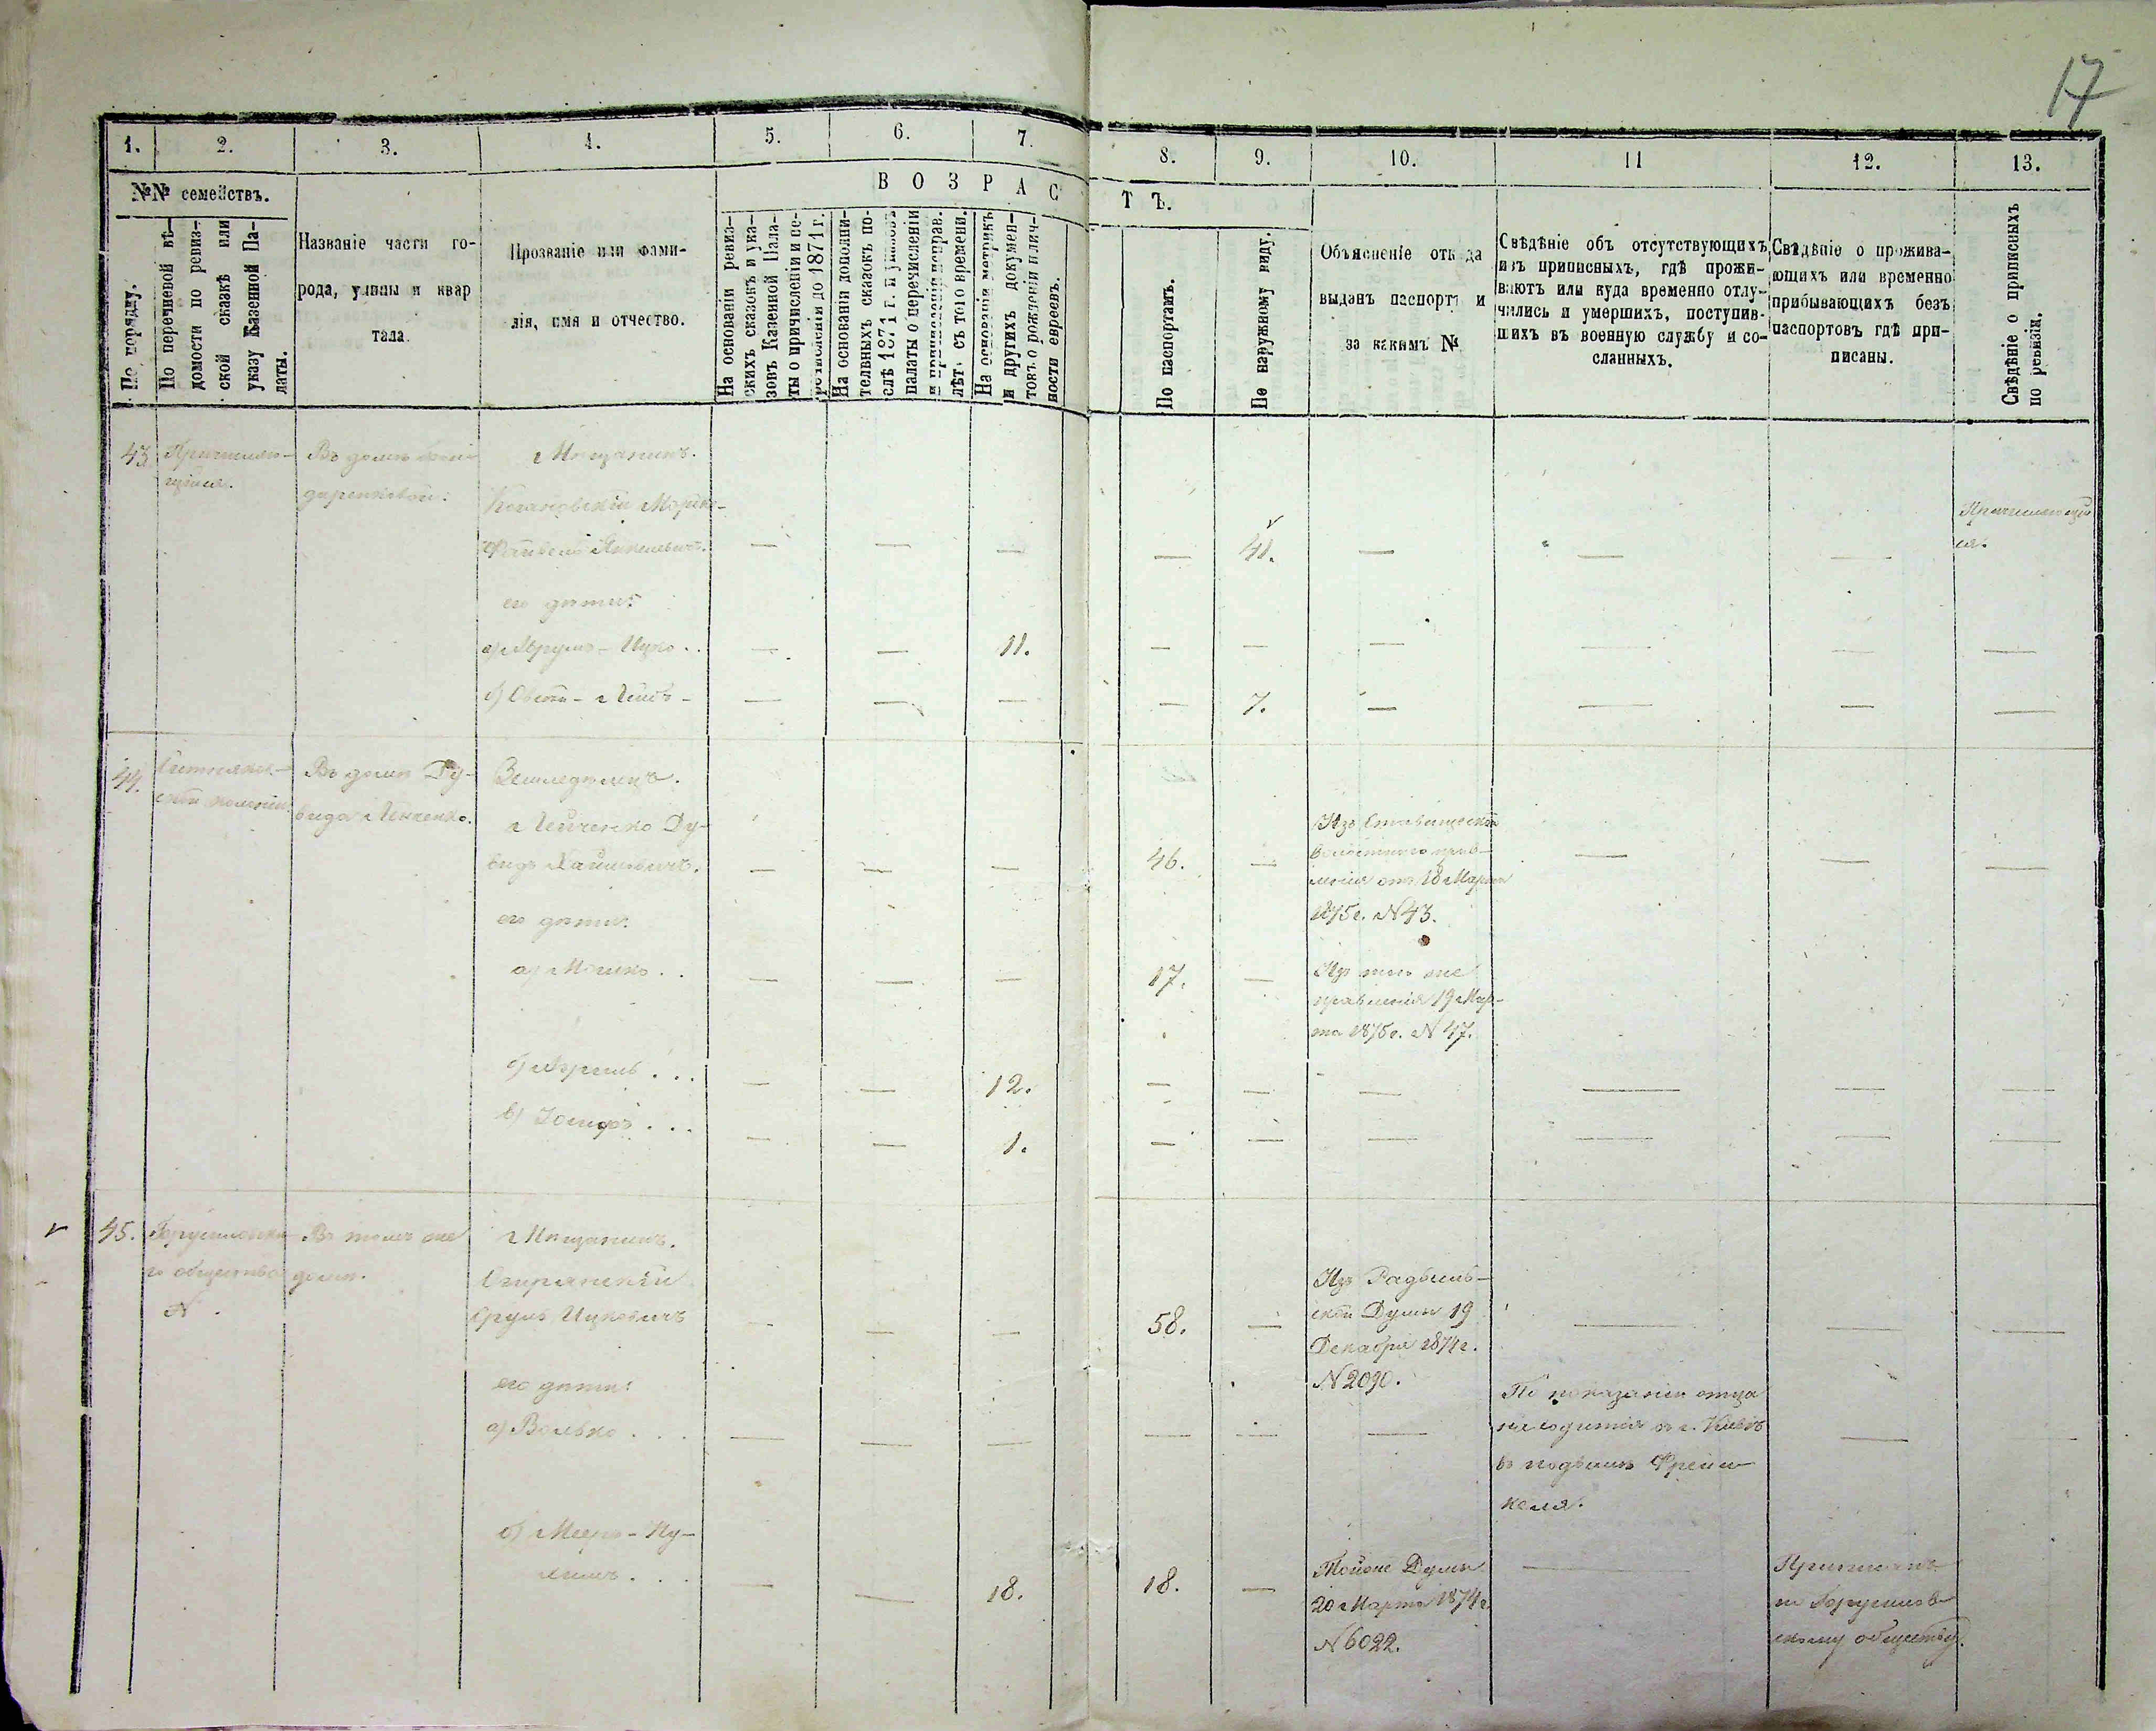 17
1.
2.
3.
4.
5.
6.
7.
8.
9.
10.
11
12.
13.
№№ семействъ.
ВОЗРАС
ТЪ.
По порядку.
По перечневой вѣ-
домости по ревиз-
ской сказкѣ или
указу Казенной Па-
латы.
Названіе части го-
рода, улицы и квар
тала.
Прозваніе или фами-
лія, имя и отчество.
На основаніи ревиз-
скихъ сказокъ и ука-
зовъ Казенной Пала-
ты о причисленіи и пе-
речисленіи до 1871 г.
На основаніи дополни-
тельныхъ сказокъ по-
слѣ 1871 г. и указовъ
палаты о перечисленіи
лѣтъ съ того времени.
На основаніи метрикъ
и другихъ докумен-
товъ о рожденіи и лич-
ности евреевъ.
По паспортамъ.
По наружному виду.
Объясненіе отк да
выданъ паспортъ и
за какимъ №
Свѣдѣніе объ отсутствующихъ
изъ приписныхъ, гдѣ прожи-
ваютъ или куда временно отлу-
чились и умершихъ, поступив-
шихъ въ военную службу и со-
сланныхъ.
Свѣдѣніе о прожива-
ющихъ или временно
прибывающихъ безъ
паспортовъ гдѣ при-
писаны.
Свѣдѣніе о приписныхъ
по ревизіи.
43.
Причисляю-
щійся.
Въ домѣ
Мѣщанинъ.
Мошко-
—
—
—
—
41.
—
—
—
Причисляющій
ся.
его дѣти:
а) Аврумъ-Ицко..
—
—
11.
—
—
—
—
—
—
б)
—
—
—
—
7.
—
—
—
—
44.
колоніи.
Въ домѣ Ду-
вида Лейченко.
Земледѣлецъ.
Лейченко Ду-
видъ Хаимовичъ.
—
—
—
46.
—
Изъ Ставищскаго
волостного прав-
ленія отъ 18 Марта
1875 г. №43.
—
—
—
его дѣти:
а) Мошко..
—
—
—
17.
—
Изъ того же
правленія 19 Мар-
та 1875 г. № 47.
б)
—
—
12.
—
—
—
—
—
—
в) Іосифъ...
—
—
1.
—
—
—
—
—
—
45.
Брусиловска-
го общества
№
Въ томъ же
домѣ.
Мѣщанинъ.
Сруль Ицковичъ
—
—
—
58.
—
Изъ Радомысль-
ской Думы 19
Декабря 1874 г.
№ 2090.
—
—
—
его дѣти:
а) Волько...
—
—
—
—
—
—
По показанію отца
находится въ г. Кіевѣ
—
—
б) Меер-Ну-
химъ...
—
—
18.
18.
—
Той же Думы
20 Марта 1874 г.
№6022.
—
Приписанъ
къ Брусилов-
скому обществу.